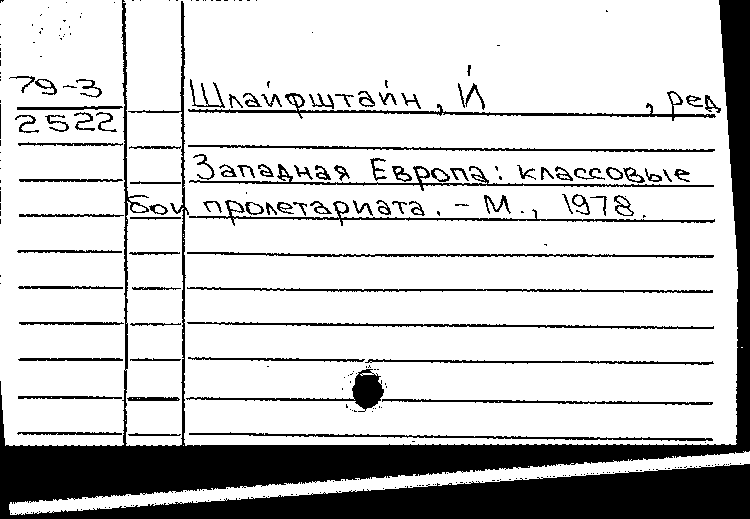 79-3
2522
Шлайфштайн, Й , ред
Западная Европа: классовые
бои пролетариата. - М., 1978.